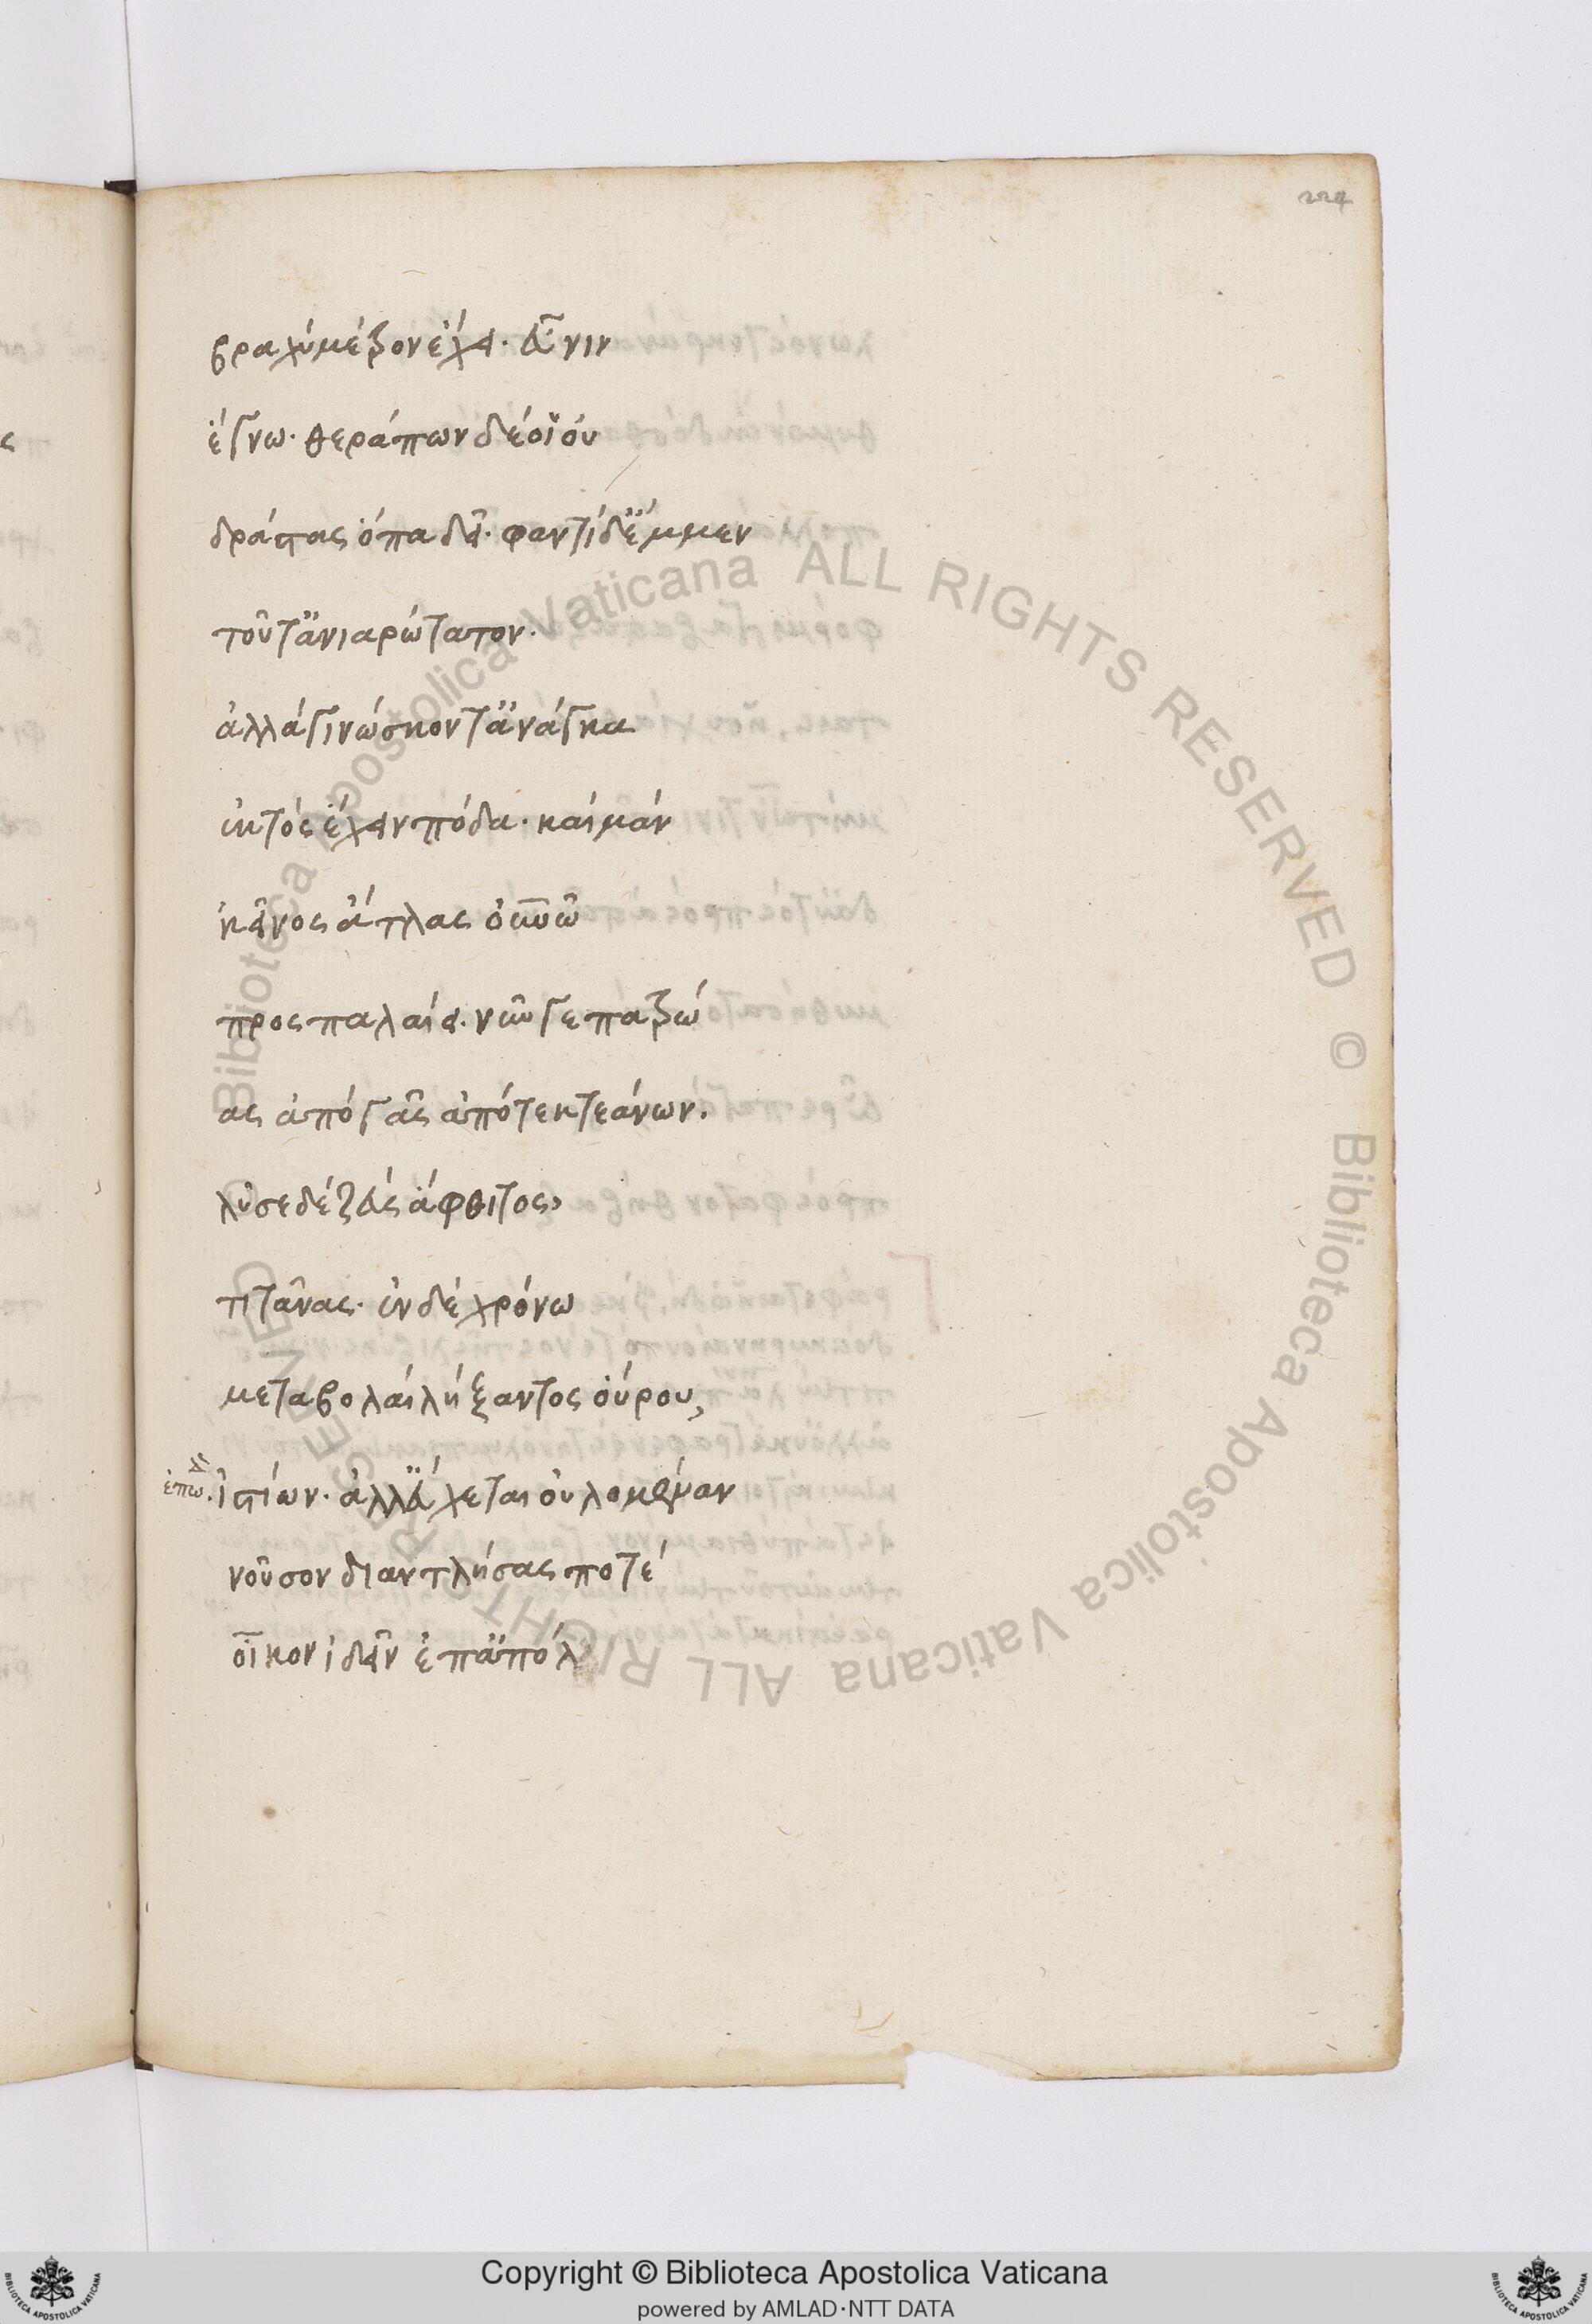 224
βραχύ μέτρον ἔχει. εὖ νιν
ἔγνω. θεράπων δέ οἱ οὐ
δράστας ὀπαδεῖ. φαντὶ δ' ἔμμεν
τοῦτ' ἀνιαρώτατον.
ἀλλὰ γινώσκοντ' ἀνάγκα
ἐκτὸς ἔχειν πόδα. καὶ μὰν
κεῖνος ἄτλας οὐρανῶ
προσπαλαίει. νῦν γε πατρώ
ας ἀπὸ γᾶς ἀπό τε κτεάνων.
λῦσε δὲ ζεὺς ἄφθιτος,
τιτᾶνας. ἐν δὲ χρόνω
μεταβολαὶ λήξαντος οὔρου,
ἐπω. ἱστίων. ἀλλ' εὔχεται οὐλομέναν
νοῦσον διαντλήσας ποτέ
οἶκον ἰδεῖν ἐπ' ἀπόλ
Biblioteca Apostolica Vaticana ALL RIGHTS RESERVED © Biblioteca Apostolica Vaticana ALL RIGHTS RESERVED ©
Copyright © Biblioteca Apostolica Vaticana
powered by AMLAD·NTT DATA
BIBLIOTECA APOSTOLICA VATICANA
BIBLIOTECA APOSTOLICA VATICANA